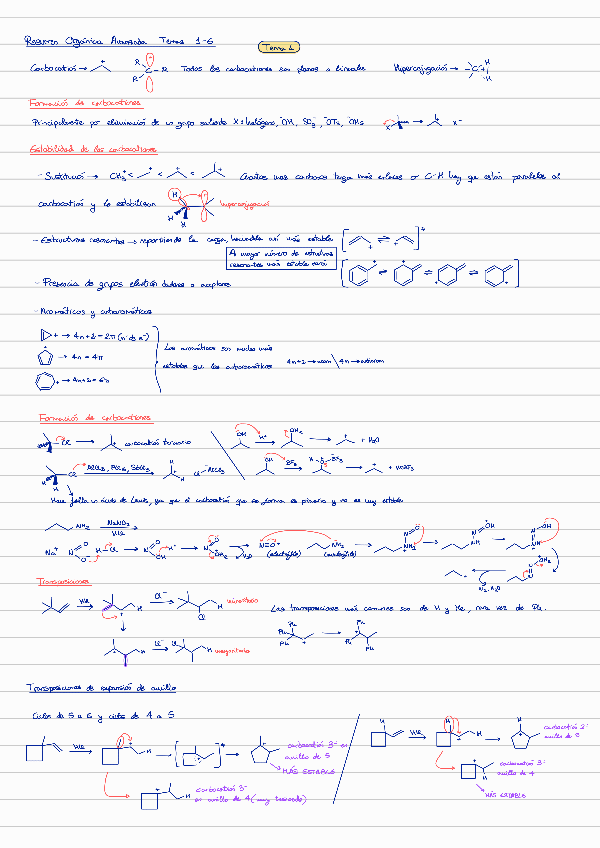 Resumen Orgánica Avanzada Temas 1-6
Tema 1
Carbocatión → Todos los carbocationes son planos o lineales Hiperconjugación →
Formación de carbocationes
Principalmente por eliminación de un grupo saliente X = halógeno, OH, SO3, OTs, OMs
Estabilidad de los carbocationes
- Sustitución → CH3+ < < < Cuantos más carbonos haya más enlaces C-H hay que están paralelos al
carbocatión y lo estabilizan hiperconjugación
- Estructuras resonantes → repartiendo la carga, haciéndola así más estable
A mayor número de estructuras
resonantes más estable será
- Presencia de grupos electrón dadores o aceptores
- Aromáticos y antiaromáticos
→ 4n+2 = 2π (nº de e-)
→ 4n = 4π
→ 4n+2 = 6π
Los aromáticos son mucho más
estables que los antiaromáticos 4n+2 → arom \ 4n → antiarom
Formación de carbocationes
Cl → carbocatión terciario
OH H+ OH2 + H2O
Cl AlCl3, FeCl3, SbCl3 Cl-AlCl3
OH BF3 H O BF3 + HOBF3
Hace falta un ácido de Lewis, ya que el carbocatión que se forma es primario y no es muy estable
NH2 NaNO2 HCl
(electrófilo) (nucleófilo)
N2, H2O
Transposiciones
HCl Cl- Cl minoritario
Cl- Cl mayoritario
Las transposiciones más comunes son de H y Me, rara vez de Ph.
Ph Ph Ph Ph
Transposiciones de expansión de anillo
Ciclos de 5 a 6 y ciclos de 4 a 5
HCl carbocatión 3º en
anillo de 5
MÁS ESTABLE
carbocatión 3º
en anillo de 4 (muy tensado)
HCl carbocatión 2º
anillo de 5
carbocatión 3º
anillo de 4
MÁS ESTABLE